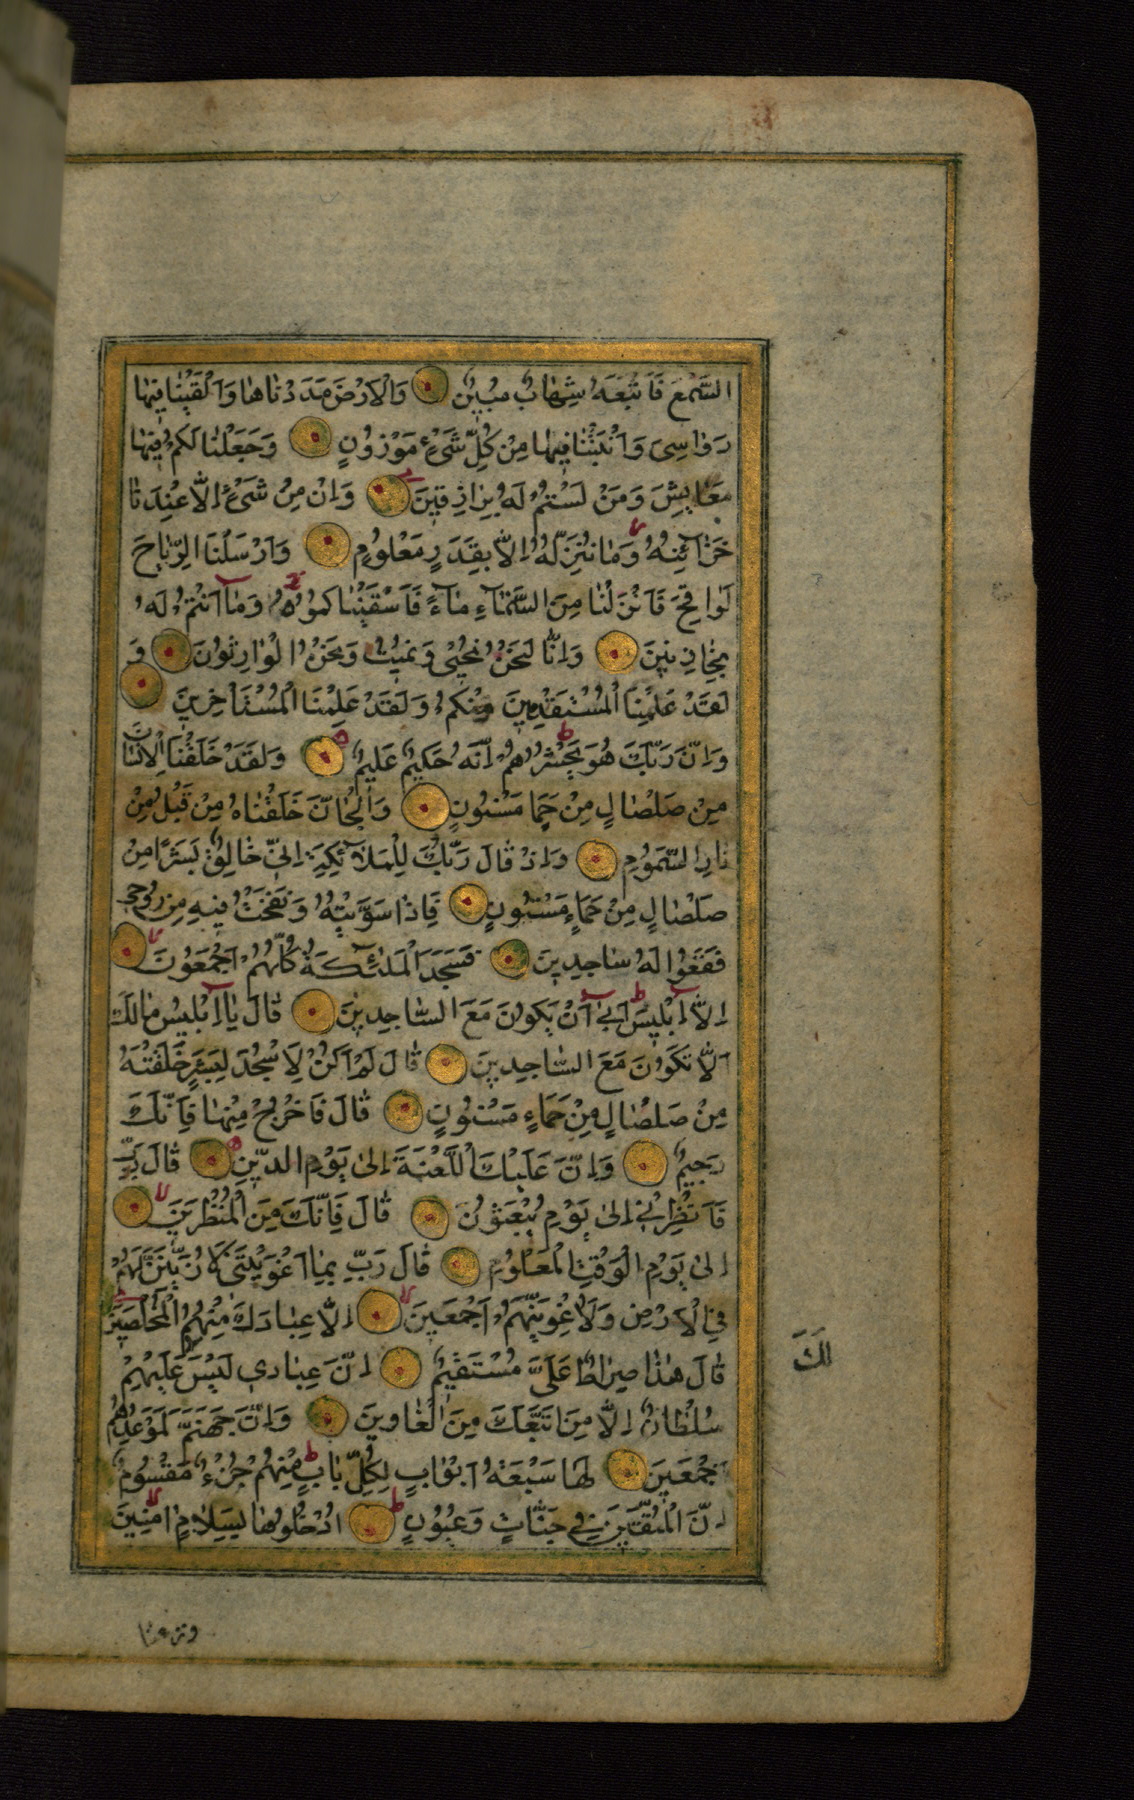 السَّمْعَ فَاَتْبَعَهُ شِهَابٌ مُبِينٌ وَالْاَرْضَ مَدَدْنَاهَا وَاَلْقَيْنَا فِيهَا
رَوَاسِىَ وَاَنْبَتْنَا فِيهَا مِنْ كُلِّ شَىْءٍ مَوْزُونٍ وَجَعَلْنَا لَكُمْ فِيهَا
مَعَايِشَ وَمَنْ لَسْتُمْ لَهُ بِرَازِقِينَ وَاِنْ مِنْ شَىْءٍ اِلَّا عِنْدَنَا
خَزَآئِنُهُ وَمَا نُنَزِّلُهُ اِلَّا بِقَدَرٍ مَعْلُومٍ وَاَرْسَلْنَا الرِّيَاحَ
لَوَاقِحَ فَاَنْزَلْنَا مِنَ السَّمَآءِ مَآءً فَاَسْقَيْنَاكُمُوهُ وَمَآ اَنْتُمْ لَهُ
بِخَازِنِينَ وَاِنَّا لَنَحْنُ نُحْيِى وَنُمِيتُ وَنَحْنُ الْوَارِثُونَ وَ
لَقَدْ عَلِمْنَا الْمُسْتَقْدِمِينَ مِنْكُمْ وَلَقَدْ عَلِمْنَا الْمُسْتَاْخِرِينَ
وَاِنَّ رَبَّكَ هُوَ يَحْشُرُهُمْ اِنَّهُ حَكِيمٌ عَلِيمٌ وَلَقَدْ خَلَقْنَا الْاِنْسَانَ
مِنْ صَلْصَالٍ مِنْ حَمَاٍ مَسْنُونٍ وَالْجَانَّ خَلَقْنَاهُ مِنْ قَبْلُ مِنْ
نَارِ السَّمُومِ وَاِذْ قَالَ رَبُّكَ لِلْمَلَآئِكَةِ اِنِّى خَالِقٌ بَشَرًا مِنْ
صَلْصَالٍ مِنْ حَمَاءٍ مَسْنُونٍ فَاِذَا سَوَّيْتُهُ وَنَفَخْتُ فِيهِ مِنْ رُوحِى
فَقَعُوا لَهُ سَاجِدِينَ فَسَجَدَ الْمَلٰٓئِكَةُ كُلُّهُمْ اَجْمَعُونَ
اِلَّآ اِبْلِيسَ اَبٰىٓ اَنْ يَكُونَ مَعَ السَّاجِدِينَ قَالَ يَآ اِبْلِيسُ مَالَكَ
اَلَّا تَكُونَ مَعَ السَّاجِدِينَ قَالَ لَمْ اَكُنْ لِاَسْجُدَ لِبَشَرٍ خَلَقْتَهُ
مِنْ صَلْصَالٍ مِنْ حَمَاءٍ مَسْنُونٍ قَالَ فَاخْرُجْ مِنْهَا فَاِنَّكَ
رَجِيمٌ وَاِنَّ عَلَيْكَ اللَّعْنَةَ اِلٰى يَوْمِ الدِّينِ قَالَ رَبِّ
فَاَنْظِرْنِى اِلٰى يَوْمِ يُبْعَثُونَ قَالَ فَاِنَّكَ مِنَ الْمُنْظَرِينَ
اِلٰى يَوْمِ الْوَقْتِ الْمَعْلُومِ قَالَ رَبِّ بِمَآ اَغْوَيْتَنِى لَاُزَيِّنَنَّ لَهُمْ
فِى الْاَرْضِ وَلَاُغْوِيَنَّهُمْ اَجْمَعِينَ اِلَّا عِبَادَكَ مِنْهُمُ الْمُخْلَصِينَ
قَالَ هٰذَا صِرَاطٌ عَلَىَّ مُسْتَقِيمٌ اِنَّ عِبَادِى لَيْسَ لَكَ عَلَيْهِمْ
سُلْطَانٌ اِلَّا مَنِ اتَّبَعَكَ مِنَ الْغَاوِينَ وَاِنَّ جَهَنَّمَ لَمَوْعِدُهُمْ
اَجْمَعِينَ لَهَا سَبْعَةُ اَبْوَابٍ لِكُلِّ بَابٍ مِنْهُمْ جُزْءٌ مَقْسُومٌ
اِنَّ الْمُتَّقِينَ فِى جَنَّاتٍ وَعُيُونٍ اُدْخُلُوهَا بِسَلَامٍ اٰمِنِينَ
ونزعنا